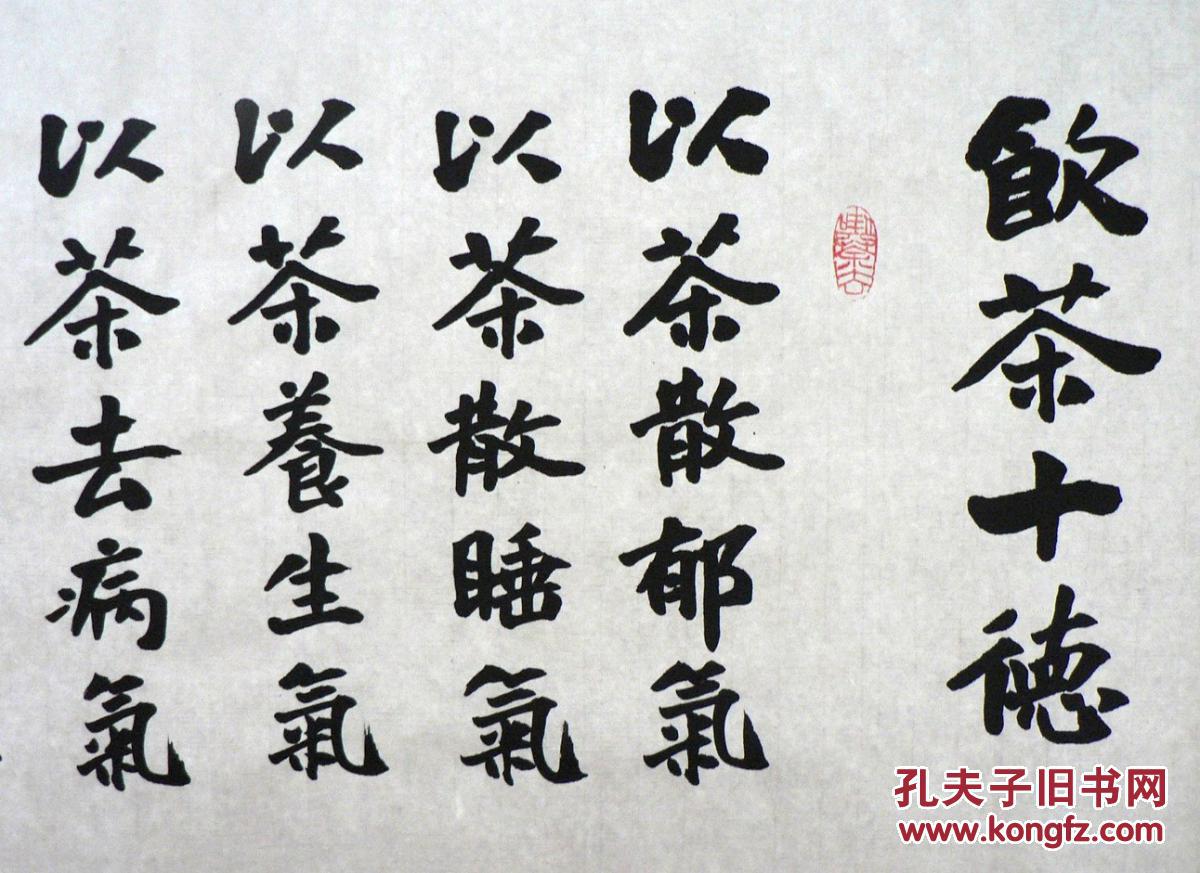 飲茶十德
以茶散郁氣
以茶散睡氣
以茶養生氣
以茶去病氣
孔夫子旧书网
www.kongfz.com